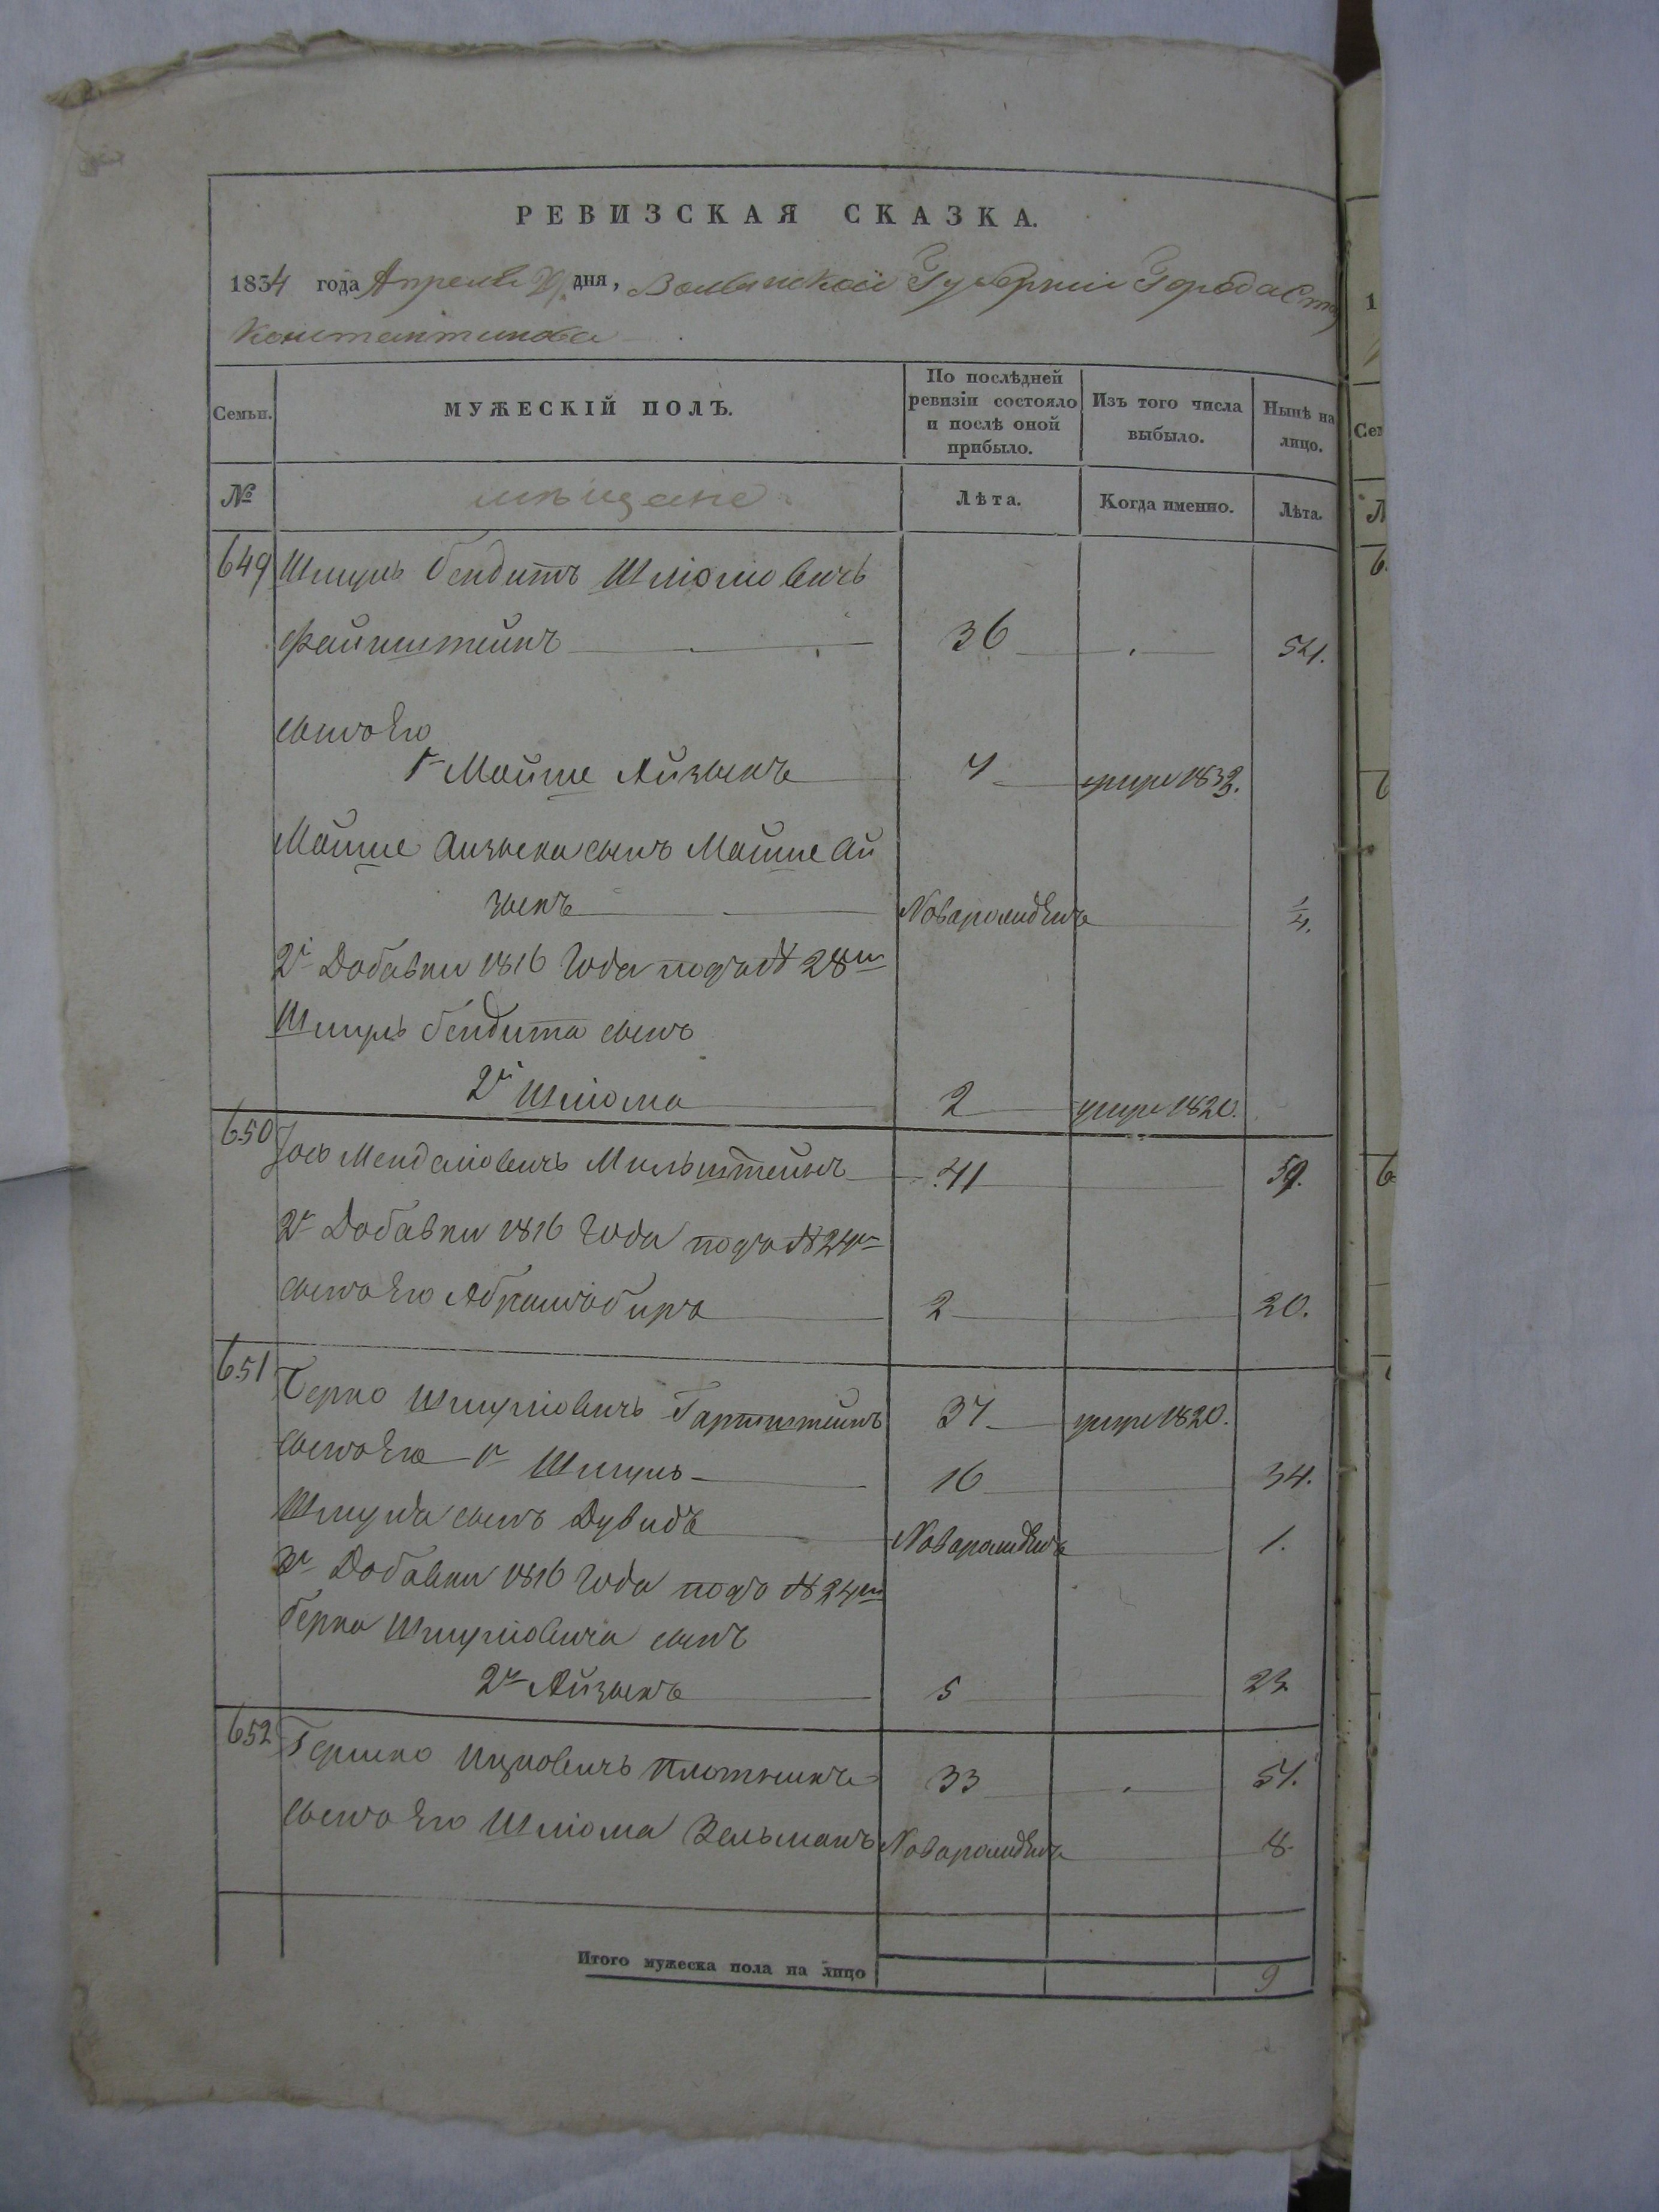 РЕВИЗСКАЯ СКАЗКА.
1834 года Апреля дня, Волынской Губернии Города Ста
Константинова
Семьи. МУЖЕСКІЙ ПОЛЪ. По послѣдней ревизіи состояло и послѣ оной прибыло. Изъ того числа выбыло. Нынѣ на лицо.
№ мѣщане Лѣта. Когда именно. Лѣта.
649 Шмуль бендитъ Шліомовичъ
Файнштейнъ 36 54.
сынъ Его
1й Мойше Айзыкъ 4 умре 1833.
Мойше Айзыка сынъ Мойше Ай
зыкъ Новорожденъ 1/4.
2й Добавки 1816 Года подъ № 28м
Шмуль бендита сынъ
2й Шліома 2 умре 1820.
650 Іось Мендельовичъ Мильштейнъ 41 59.
2й Добавки 1816 Года подъ № 24м
сынъ Его Абрамъ 2 20.
651 Берко Шмуліовичъ Гартштейнъ 37 умре 1820.
сынъ Его 1й Шмуль 16 34.
Шмуля сынъ Дувидъ Новорожденъ 1.
Добавки 1816 Года подъ № 24м
берка Шмуліовича сынъ
2й Айзыкъ 5 23.
652 Гершко Ицковичъ Плотникъ 33 51.
сынъ Его Шліома Зельманъ Новорожденъ 8.
Итого мужеска пола на лицо 9
1
Се